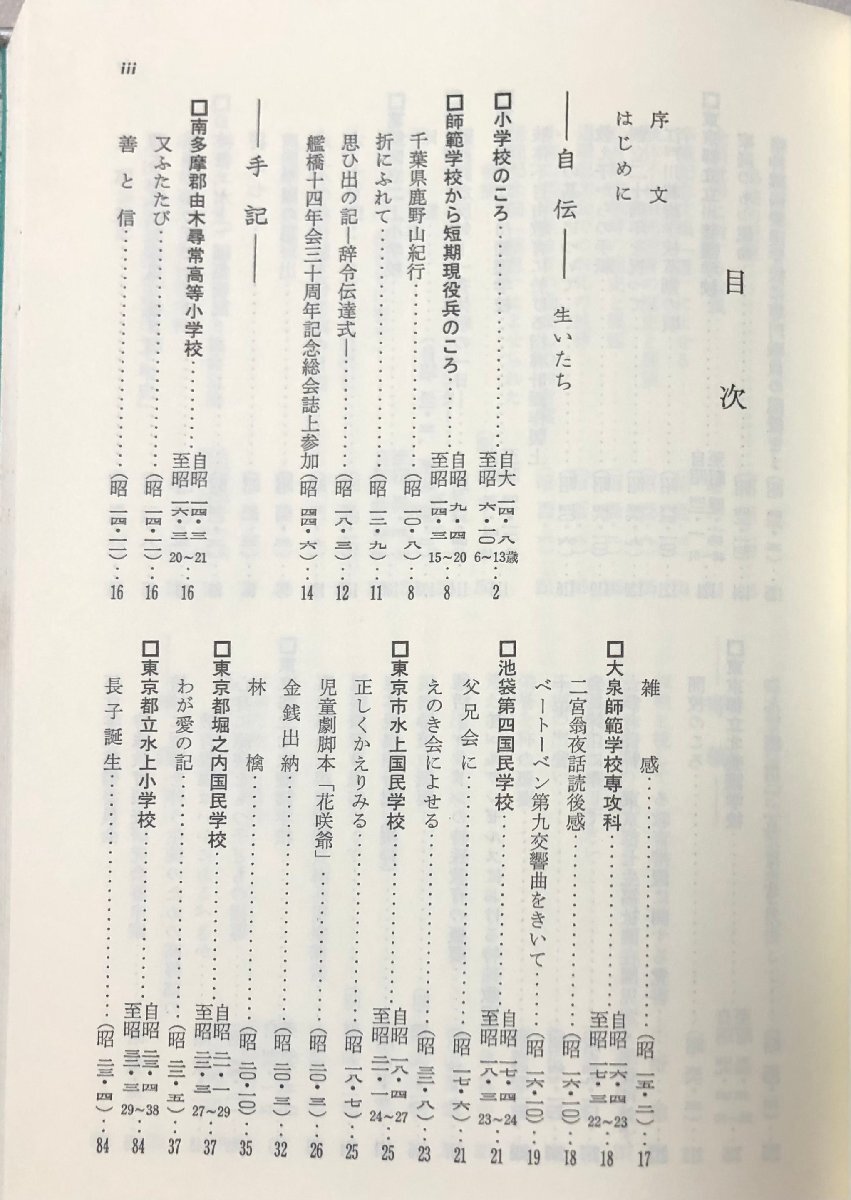 iii
目次
序文
はじめに
――自伝―― 生いたち
□小学校のころ……自大一四・八 至昭六・一〇 6～13歳…2
□師範学校から短期現役兵のころ……自昭九・四 至昭一四・三 15～20…8
千葉県鹿野山紀行……(昭一〇・八)…8
折にふれて……(昭一二・九)…11
思ひ出の記―辞令伝達式―……(昭一八・三)…12
艦橋十四年会三十周年記念総会誌上参加(昭四四・六)…14
――手記――
□南多摩郡由木尋常高等小学校……自昭一四・三 至昭一六・三 20～21…16
又ふたたび……(昭一四・一一)…16
善と信……(昭一四・一一)…16
雑感……(昭一五・二)…17
□大泉師範学校専攻科……自昭一六・四 至昭一七・三 22～23…18
二宮翁夜話読後感……(昭一六・一〇)…18
ベートーベン第九交響曲をきいて……(昭一六・一〇)…19
□池袋第四国民学校……自昭一七・四 至昭一八・三 23～24…21
父兄会に……(昭一七・六)…21
えのき会によせる……(昭三三・八)…23
□東京市水上国民学校……自昭一八・四 至昭二一・一 24～27…25
正しくかえりみる……(昭一八・七)…25
児童劇脚本「花咲爺」……(昭二〇・三)…26
金銭出納……(昭二〇・三)…32
林檎……(昭二〇・一〇)…35
□東京都堀之内国民学校……自昭二一・一 至昭二三・三 27～29…37
わが愛の記……(昭二二・五)…37
□東京都立水上小学校……自昭二三・四 至昭三二・三 29～38…84
長子誕生……(昭二三・四)…84